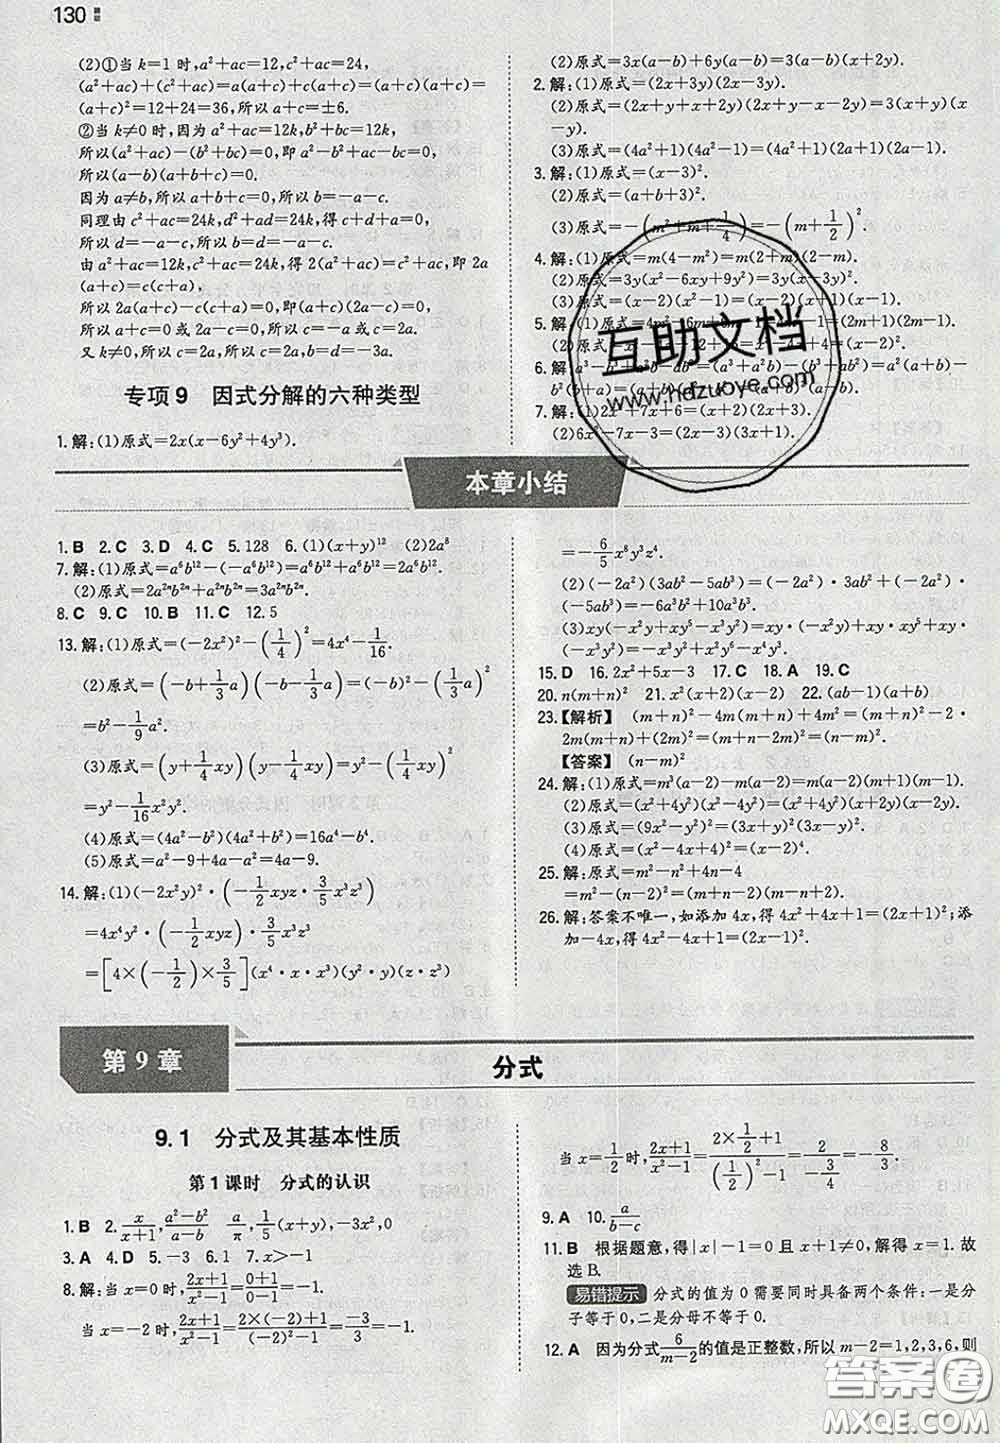 130
(2)①当k=1时,a²+ac=12,c²+ac=24,
(a²+ac)+(c²+ac)=a(a+c)+c(a+c)=(a+c)(a+c)=
(a+c)²=12+24=36,所以a+c=±6.
②当k≠0时,因为a²+ac=12k,b²+bc=12k,
所以(a²+ac)-(b²+bc)=0,即a²-b²+ac-bc=0,
所以(a-b)(a+b+c)=0.
因为a≠b,所以a+b+c=0,所以b=-a-c.
同理由c²+ac=24k,d²+ad=24k,得c+d+a=0,
所以d=-a-c,所以b=d=-a-c.
由a²+ac=12k,c²+ac=24k,得2(a²+ac)=c²+ac,即2a
(a+c)=c(c+a),
所以2a(a+c)-c(a+c)=0,即(a+c)(2a-c)=0,
所以a+c=0或2a-c=0,所以c=-a或c=2a.
又k≠0,则c=2a,所以c=2a,b=d=-3a.
专项9 因式分解的六种类型
1.解:(1)原式=2x(x-6y²+4y³).
(2)原式=3x(a-b)+6y(a-b)=3(a-b)(x+2y).
2.解:(1)原式=(2x+3y)(2x-3y).
(2)原式=(2x+y+x+2y)(2x+y-x-2y)=3(x+y)(x
-y).
(3)原式=(4a²+1)(4a²-1)=(4a²+1)(2a+1)(2a-1).
3.解:(1)原式=(x-3)².
(2)原式=(a+b+3)².
(3)原式=-(m²+m+1/4)=-(m+1/2)².
4.解:(1)原式=m(4-m²)=m(2+m)(2-m).
(2)原式=3y(x²-6xy+9y²)=3y(x-3y)².
(3)原式=(x-2)(x²-1)=(x-2)(x+1)(x-1).
5.解:(1)原式=4m²-1=(2m+1)(2m-1).
6.解:
7.解:
(2)6x²-7x-3=(2x-3)(3x+1).
互助文档
www.hdzuoye.com
本章小结
1.B 2.C 3.D 4.C 5.128 6.(1)(x+y)¹² (2)2a⁸
7.解:(1)原式=a⁶b¹²-(-a⁶b¹²)=a⁶b¹²+a⁶b¹²=2a⁶b¹².
(2)原式=2a²ⁿb²ⁿ+a²ⁿb²ⁿ=3a²ⁿb²ⁿ.
8.C 9.C 10.B 11.C 12.5
13.解:(1)原式=(-2x²)²-(1/4)²=4x⁴-1/16.
(2)原式=(-b+1/3a)(-b-1/3a)=(-b)²-(1/3a)²
=b²-1/9a².
(3)原式=(y+1/4xy)(y-1/4xy)=y²-(1/4xy)²
=y²-1/16x²y².
(4)原式=(4a²-b²)(4a²+b²)=16a⁴-b⁴.
(5)原式=a²-9+4a-a²=4a-9.
14.解:(1)(-2x²y)²·(-1/2xyz·3/5x³z³)
=4x⁴y²·(-1/2xyz)·3/5x³z³
=[4×(-1/2)×3/5](x⁴·x·x³)(y²·y)(z·z³)
=-6/5x⁸y³z⁴.
(2)(-2a²)(3ab²-5ab³)=(-2a²)·3ab²+(-2a²)·
(-5ab³)=-6a³b²+10a³b³.
(3)xy(-x²y+xy⁵-xy³)=xy·(-x²y)+xy·xy⁵+xy·
(-xy³)=-x³y²+x²y⁶-x²y⁴.
15.D 16.2x²+5x-3 17.C 18.A 19.C
20.n(m+n)² 21.x²(x+2)(x-2) 22.(ab-1)(a+b)
23.【解析】 (m+n)²-4m(m+n)+4m²=(m+n)²-2·
2m(m+n)+(2m)²=(m+n-2m)²=(n-m)².
【答案】 (n-m)²
24.解:(1)原式=m³(a-2)-m(a-2)=m(a-2)(m+1)(m-1).
(2)原式=(x²+4y)(x²-4y²)=(x²+4y)(x+2y)(x-2y).
(3)原式=(9x²-y²)=(3x+y)(3x-y).
(4)原式=(x²-4x+4)²=(x-2)⁴.
25.解:原式=m²-n²+4n-4
=m²-(n-2)²=(m+n-2)(m-n+2).
26.解:答案不唯一,如添加4x,得4x²+4x+1=(2x+1)²;添
加-4x,得4x²-4x+1=(2x-1)².
第9章
分式
9.1 分式及其基本性质
第1课时 分式的认识
1.B 2.x/(x+1),(a²-b²)/(a-b) a/π,1/5(x+y),-3x²,0
3.A 4.D 5.-3 6.1 7.x>-1
8.解:当x=0时,(2x+1)/(x²-1)=(0+1)/(0-1)=-1.
当x=-2时,(2x+1)/(x²-1)=(2×(-2)+1)/((-2)²-1)=-1.
当x=1/2时,(2x+1)/(x²-1)=(2×1/2+1)/((1/2)²-1)=2/(-3/4)=-8/3.
9.A 10.a/(b-c)
11.B 根据题意,得|x|-1=0且x+1≠0,解得x=1.故
选B.
易错提示 分式的值为0需要同时具备两个条件:一是分
子等于0,二是分母不等于0.
12.A 因为分式6/(m-2)的值是正整数,所以m-2=1,2,3,6,则
答案圈
MXQE.COM